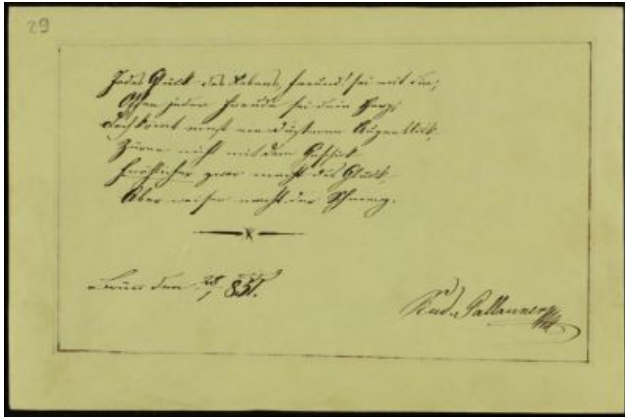 29
Jedes Glück des Lebens, Freund! sei mit dir,
Offen jeder Freude sei dein Herz;
Doch kömt einst ein düsterer Augenblick,
Zürne nicht mit dem Geschik
Fröhlicher zwar macht das Glück,
Aber weiser macht der Schmerz.
Brünn den 28/